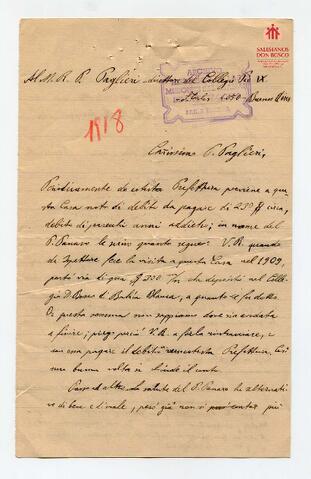 SALESIANOS
DON BOSCO
Al M. R. P. Paglieri direttore del Collegio Pio IX
4050 - Buenos Aires
ARCHIVO
1918
Carissimo P. Paglieri,
da cotesta Prefettura perviene a que
sta Casa nota di debito da pagare di 250 $ circa,
debito di parecchi anni addietro; in nome del
P. Panaro le scrivo quanto segue: V. R. quando
da Ispettore fece la visita a questa Casa nel 1909,
portò via di qua $ 350 m/n che depositò nel Colle
gio D. Bosco di Bahia Blanca, a quanto fu detto.
Di questa somma non sappiamo dove sia andata
a finire; prego perciò V. R. a farla rintracciare, e
con essa pagare il debito cotesta Prefettura. Così
una buona volta si chiude il conto.
salute del P. Panaro ha alternati
ve di bene e di male, però già non si può contar più